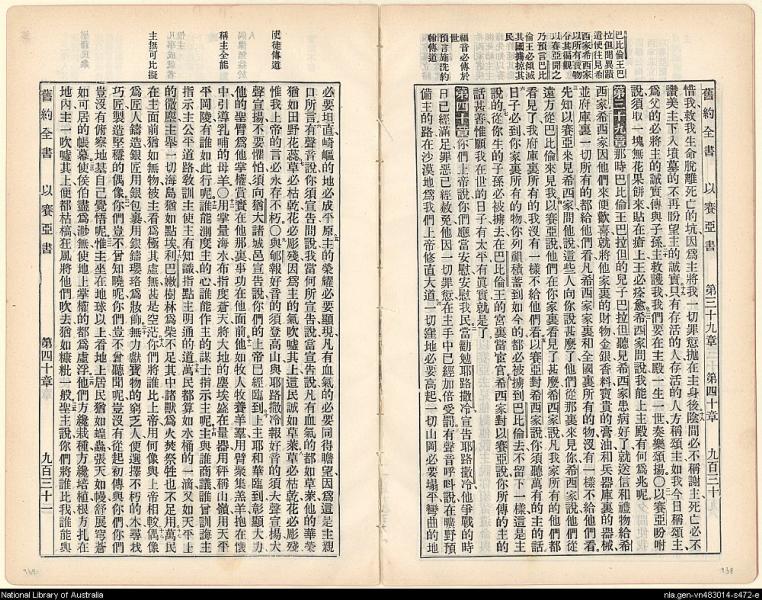 舊約全書 以賽亞書 第三十九章 第四十章 九百三十
惜我救我生命脫離死亡的坑因爲主將我一切罪愆拋在主身後陰間必不稱謝主死亡必不
讚美主下入墳墓的不再盼望主的誠實只有存活的人存活的人方稱頌主如我今日稱頌主
爲父的必將主的誠實傳與子孫主救護我我們要在主殿一生一世奏樂頌揚〇以賽亞吩咐
說須取一塊無花果餅來貼在瘡上王必痊愈希西家問說我能上主殿有何爲兆呢
第三十九章那時巴比倫王巴拉但的兒子巴拉但聽見希西家患病好了就送信和禮物給希
西家希西家因他們來便歡喜就將他家裏的財物金銀香料寶貴的膏油和兵器庫裏的器械
並府庫裏一切所有的都給他們看凡希西家家裏和全國裏所有的物沒有一樣不給他們看
先知以賽亞來見希西家問他說這些人向你說甚麼了他們從那裏來見你希西家說他們從
遠方從巴比倫來見我以賽亞說他們在你家裏看見了甚麼希西家說凡我家所有的他們都
看見了我府庫裏所有的我沒有一樣不給他們看以賽亞對希西家說你須聽萬有的主的話
日子必到你家裏所有的物你列祖積蓄到如今的都必被擄到巴比倫去不留下一樣這是主
說的從你生的子孫必被擄去在巴比倫王的宮裏當宦官希西家對以賽亞說你所傳的主的
話甚善惟願我在世的日子有太平有眞實就是了
第四十章你們上帝說你們應當安慰安慰我民當勸勉耶路撒冷宣告耶路撒冷他爭戰的時
日已經滿足罪惡已經赦免他因一切罪愆在主手中已經加倍受罰有聲音呼呌說在曠野預
備主的路在沙漠地爲我們上帝修直大道一切窪地必要高起一切山岡必要塌平彎曲的地
巴比倫王巴
拉但聞異蹟
遣使往見希
西家希西家
以所有貨物
以賽亞聞之
乃預言巴比
倫王必傾滅
其國擄掠其
民
福音必傳於
世
預言施洗約
翰傳道
必要坦直崎嶇的地必成平原主的榮耀必要顯現凡有血氣的必要同得瞻望因爲這是主親
口所言有聲音說你須宣告問說我當何所宣告說當宣告說凡有血氣的都如草萊他的華榮
猶如田野花蕊草必枯乾花必彫殘因爲主的氣吹噓其上這民誠如草萊草必枯乾花必彫殘
惟我上帝的言必永存不朽〇與郇報好音的須登高山與耶路撒冷報好音的須大聲宣揚大
聲宣揚不要懼怕須向猶大諸城邑宣告說你們的上帝已經臨到上主耶和華臨到彰顯大力
他的聖臂爲他掌權賞賚在他那裏報功在他面前他如牧人牧養羊羣用臂聚集羔羊抱在懷
中引導乳哺的母羊〇用掌量海水布指度蒼天將大地的塵埃盛在量器用秤稱山嶺用天平
平岡陵有誰如此行呢誰能測度主的心誰能作主的謀士指示主呢主與誰商議誰曾訓誨主
指示主公平道路教訓主使主有知識指點主明通的道萬民都算如水桶的一滴又如天平上
的微塵主舉一切海島猶如點埃利巴嫩樹林爲柴不足其中諸獸爲火焚祭牲也不足用萬民
在主面前猶如無物被主看爲極其虛無甚是空茫你們將誰比上帝用何像與上帝相較偶像
爲匠人鑄造銀匠用銀包裹用銀鑄環珞爲妝飾無力獻寶物的窮乏人便選擇不朽的木尋找
巧匠製造堅穩的偶像你們豈不曾知曉呢你們豈不曾聽聞呢豈沒有從起初傳與你們你們
豈沒有俯察地基自己覺悟呢惟主坐在地球以上看地上居民猶如蝗蟲張天如幔舒展穹蒼
如可居的帳幕使侯伯盡爲渺無使地上掌權的都爲虛浮他們方纔栽種方纔培植根方扎在
地內主一吹噓其上便都枯槁狂風將他們吹去猶如糠粃一般聖主說你們將誰比我誰能與
舊約全書 以賽亞書 第四十章 九百三十一
使徒傳道
稱主全能
主無可比擬
National Library of Australia
nla.gen-vn483014-s472-e